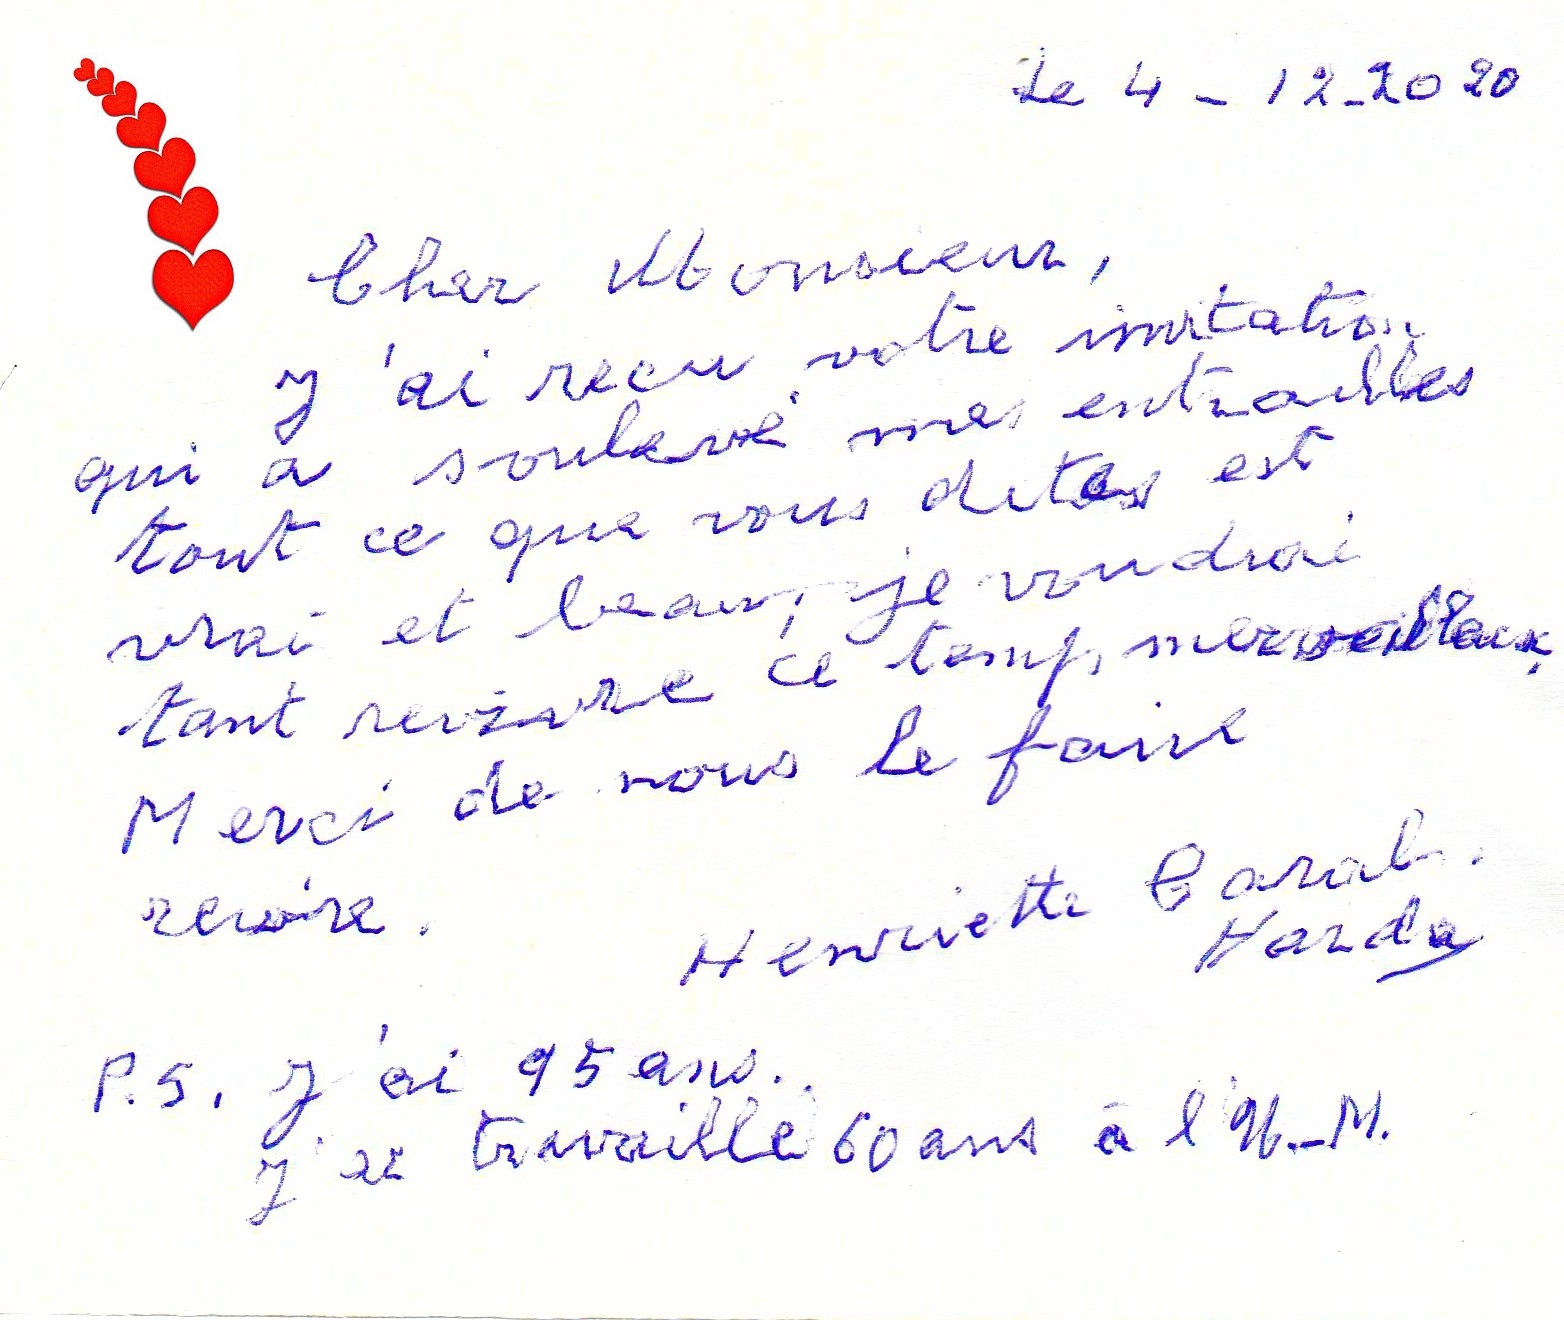 Le 4 - 12-2020
Cher Monsieur,
J'ai recu votre invitation
qui a soulevé mes entrailles
tout ce que vous dites est
vrai et beau, je voudrai
tant revivre ce temps merveilleux,
Merci de nous le faire
revivre.
Henriette Carab.
Harda
P.S, J'ai 95 ans..
J'ai travaillé 60 ans à l'H.-M.